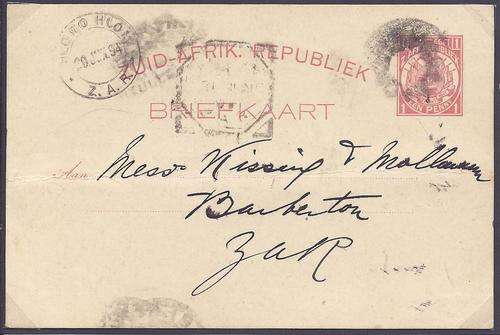 HLOMO HLOM
Z. A. R.
ZUID-AFRIK. REPUBLIEK
BRIEFKAART
EEN PENNY
Aan Messrs Kissing & Mollmann
Barberton
ZAR